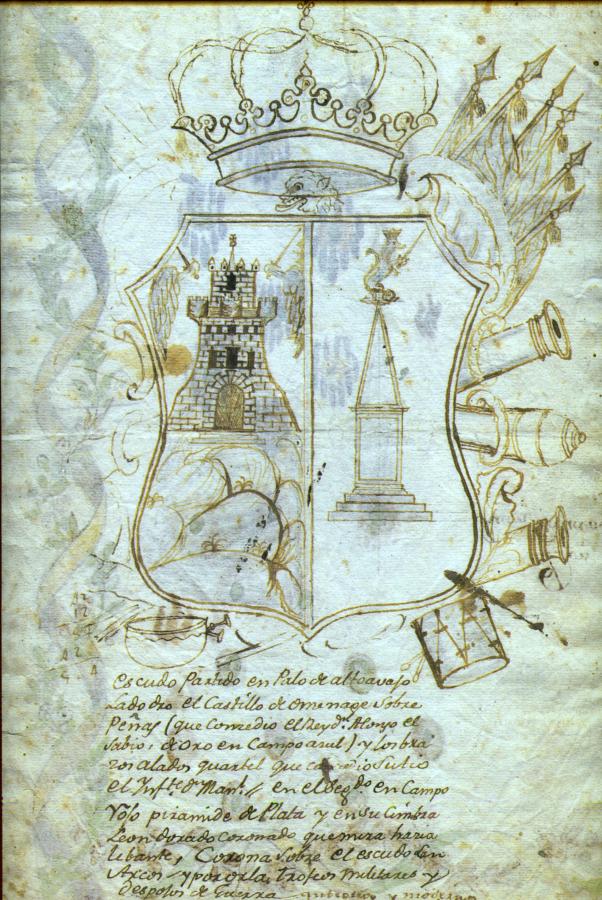 escudo Partido en Palo de alto avajo
Lado dro el Castillo de omenage sobre
Peñas (que Concedio el Rey dn. Alonso el
Sabio, de oro en Campo azul) y los bra
zos alados quartel que concedio su tio
el Ynfte. dn. Manl. // en el segdo en Campo
Rojo piramide de Plata y en su Cimbra
Leon dorado coronado que mira hazia
lebante, Corona sobre el escudo
Arcos y por orla, Trofeos Militares y
Despojos de Guerra antiguos y modernos